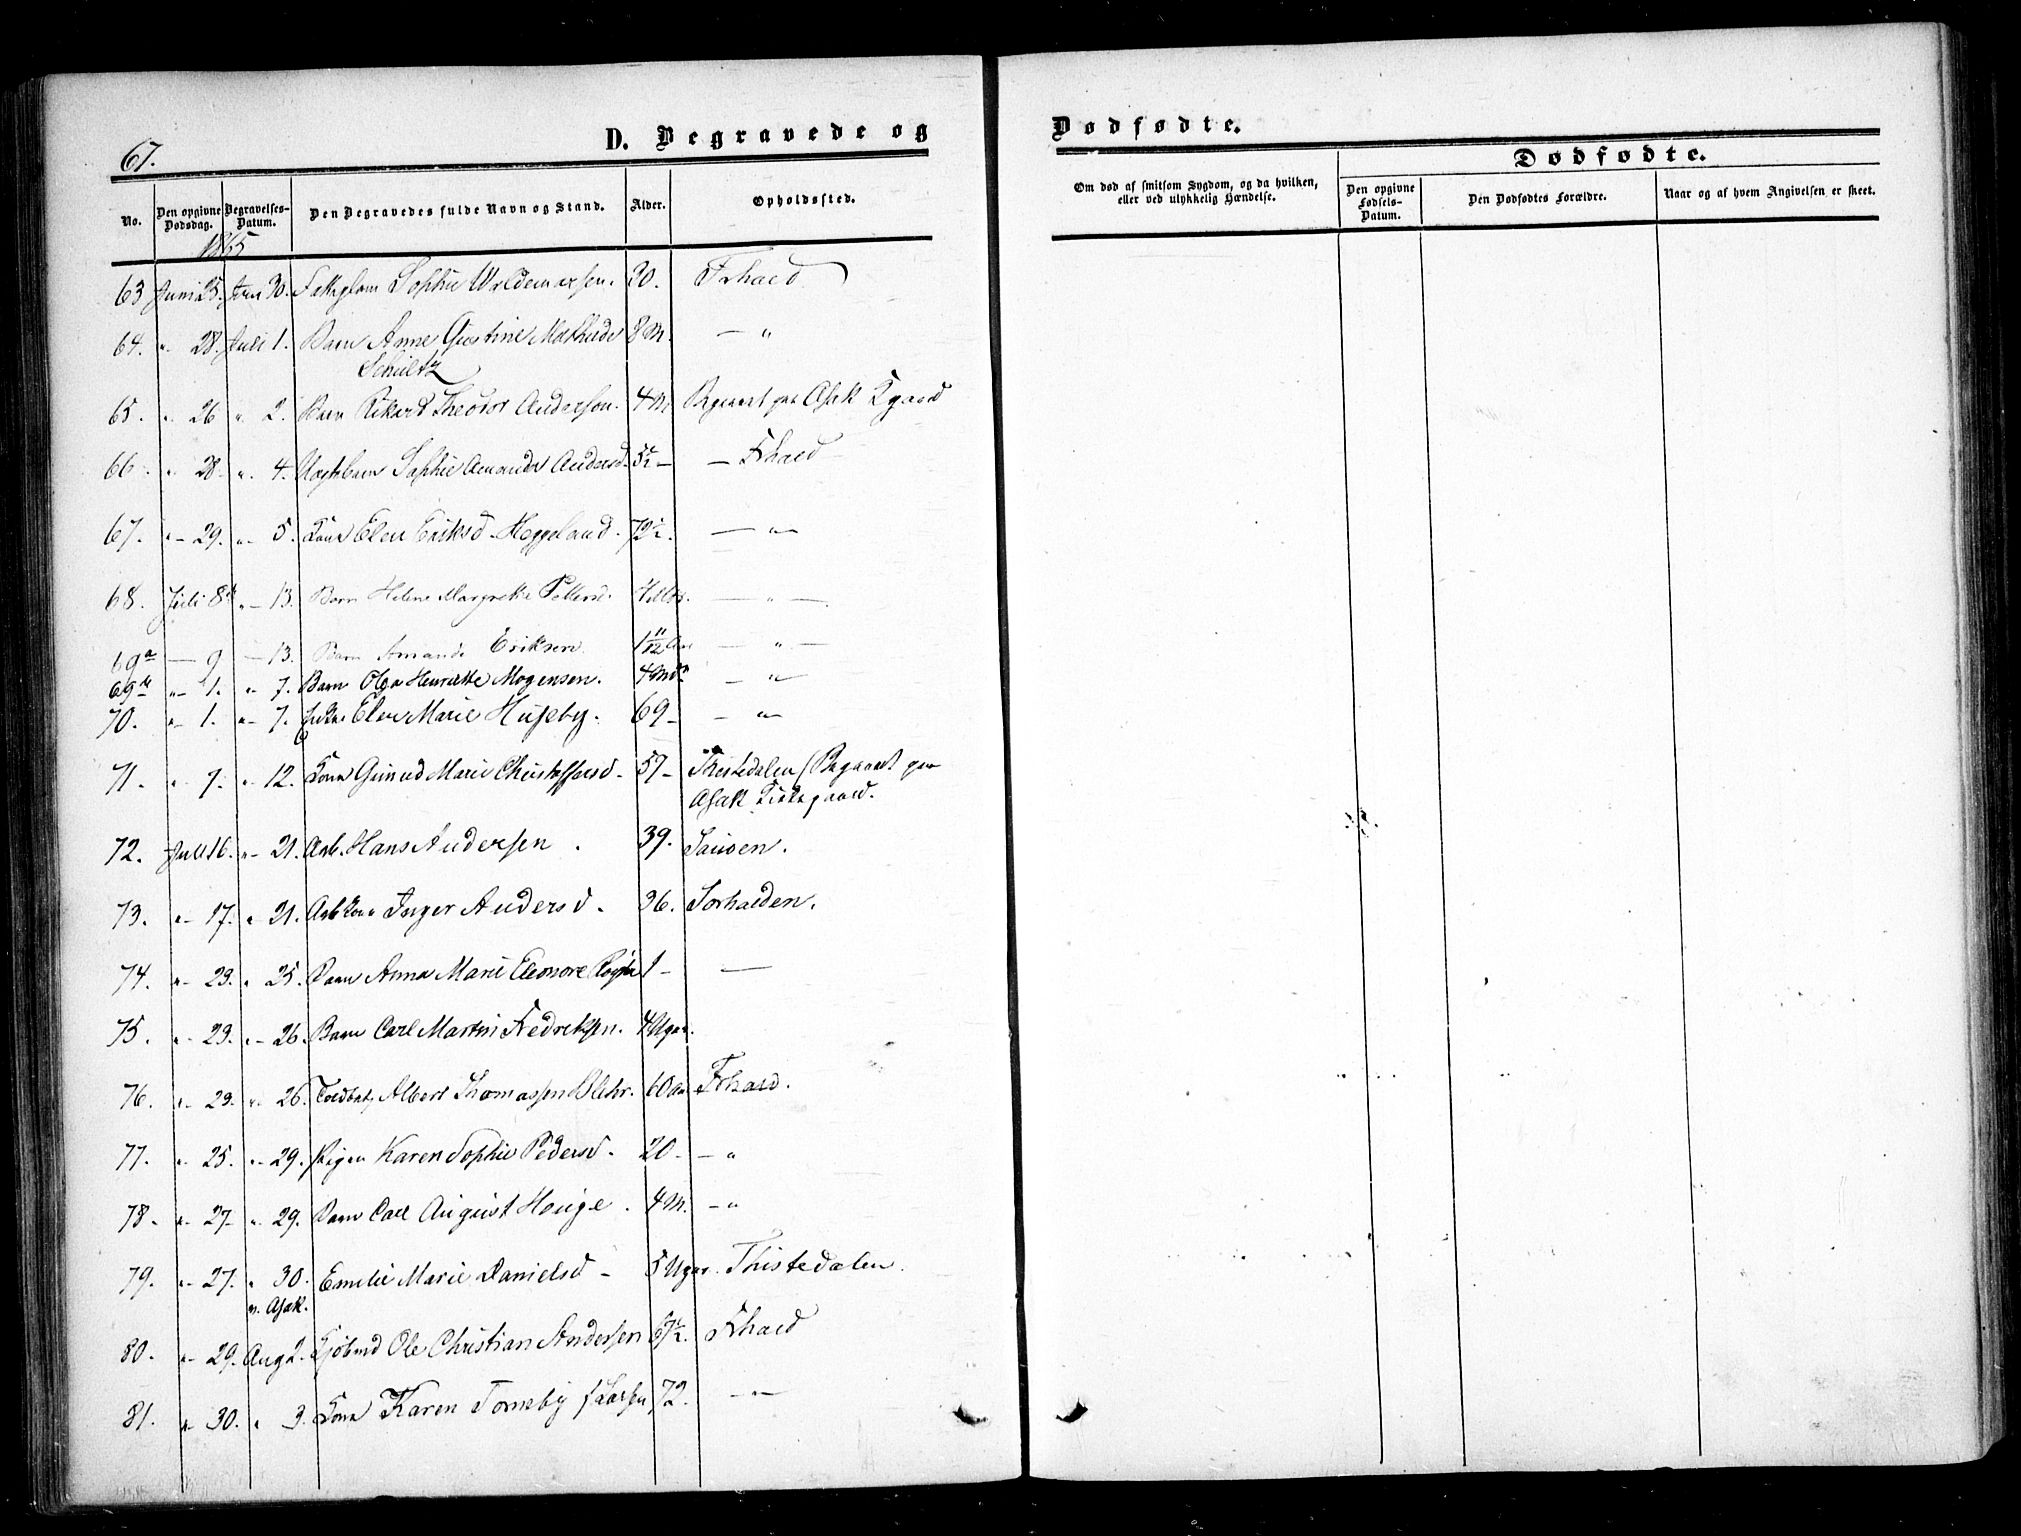 67.
D. Begravede og
Dødfødte.
No.
Den opgivne Dødsdag.
Begravelses-Datum.
Den Begravedes fulde Navn og Stand.
Alder.
Opholdssted.
Om død af smitsom Sygdom, og da hvilken,
eller ved ulykkelig Hændelse.
Dødfødte.
Den opgivne Fødsels-Datum.
Den Dødfødtes Forældre.
Naar og af hvem Angivelsen er skeet.
1865
63 Juni 25. Juni 30. Sophie Woldemarsen. Frhald
64. " 28. Juli 1. Barn Anne Gustine Mathilde 8 M. — "
Schultz
65. " 26 " 2. Barn Rikard Theodor Andersen. 4 M. Begravet paa Asak
66. " 28. " 4. Sophie Amanda Andersd. 5½ — — Frhald
67. " 29. " 5. Kone Elen Eriksd. Heggeland. 72½. — " —
68. Juli 8de " 13. Barn Helene Margrethe Petters. 4 Mdr. — " —
69a — 9 — 13. Barn Amande Eriksen 1 11/12 Aar — " —
69b " 1. " 7. Barn Olga Henriette Mogensen. 4 Mdr. — " —
70. " 1. " 7. Elen Marie Huseby. 69 — — " —
71. " 7. " 12. Kone Gunild Marie Christoffersd. 57 — Thistedalen (Begravet paa
Asak Kirkegaard.
72. Juli 16. " 21. Arb. Hans Andersen. 39.
73. " 17. " 21. Arb Kone Inger Andersd. 36.
74. " 23. " 25. Barn Anna Marie Eleonore 1 — —
75. " 23. " 26. Barn Carl Martin Fredriksen. 4 Uger.
76. " 23. " 26. Albert Thomassen 60 aar Frhald.
77. " 25. " 29. Pigen Karen Sophie Pedersd. 20. — "
78. " 27. " 29. Barn Carl August Hauge. 4 M. — "
79. " 27. " 30. Emilie Marie Danielsd — 5 Uger. Thistedalen.
Asak.
80. " 29. Aug 2. Kjøbmd Ole Christian Andersen 67½. Frhald
81. " 30. " 3. Kone Karen Torneby f. Larsen 72. — " —